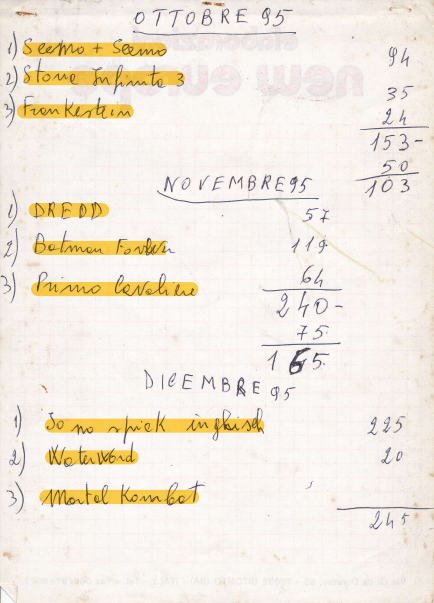 OTTOBRE 95
1) Scemo + Scemo 94
2) Storia Infinita 3 35
3) Frankestein 24
153-
50
103
NOVEMBRE 95
1) DREDD 57
2) Batman Forever 119
3) Primo Cavaliere 64
240-
75
165
DICEMBRE 95
1) Io no spick inglisch 225
2) Waterword 20
3) Mortal Kombat
245